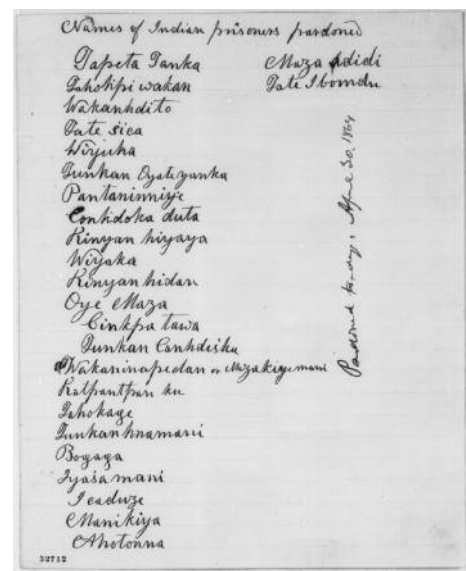 Names of Indian prisoners pardoned
Tapeta Tanka
Tahotipi wakan
Wakanhdito
Tate sica
Wiyuha
Tunkan Oyateyanka
Pantaninniye
Contidoka duta
Kinyan hiyaya
Wiyaka
Kinyan hidan
Oye Maza
Cinkpa tawa
Tunkan Canhdiska
Wakaninapedan or Mazakiyemani
Kalpantpan ku
Tahokage
Tunkanhnamani
Bogaga
Iyasamani
Icaduze
Manikiya
Ahotonna
Maza Adidi
Tate Ibomdu
Pardoned to-day, April 30, 1864
32712